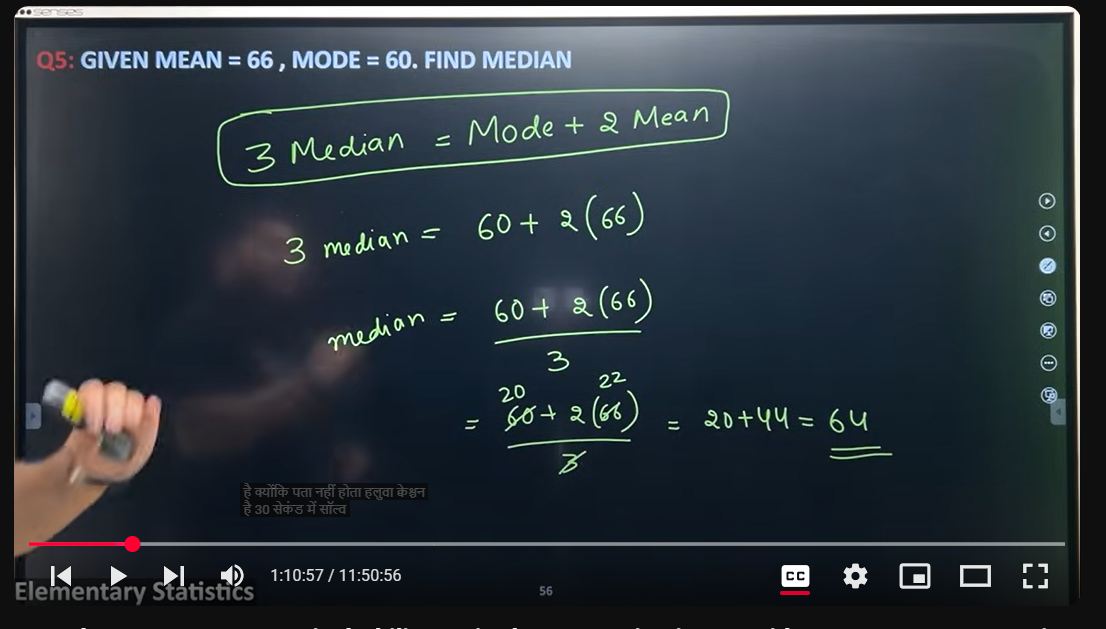 senses
Q5: GIVEN MEAN = 66 , MODE = 60. FIND MEDIAN
3 Median = Mode + 2 Mean
3 median = 60 + 2(66)
median = 60 + 2(66)
3
20 22
= 60 + 2(66) = 20+44 = 64
3
है क्योंकि पता नहीं होता हलुवा क्वेश्चन
है 30 सेकंड में सॉल्व
1:10:57 / 11:50:56
CC
Elementary Statistics
56